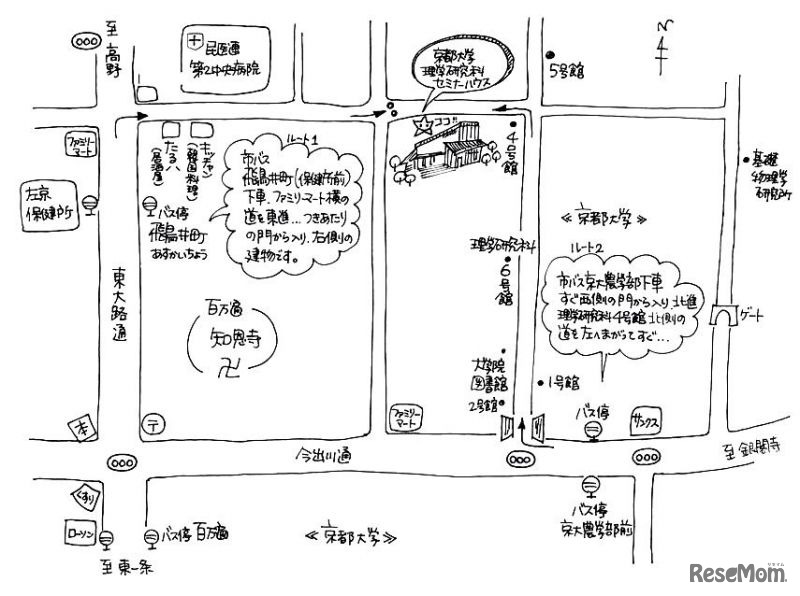 至高野
民医連
第2中央病院
京都大学
理学研究科
セミナーハウス
5号館
N
ファミリー
マート
たるハ
(居酒屋)
キッチャン
(韓国料理)
ルート1
市バス
飛鳥井町(保健所前)
下車、ファミリーマート横の
道を東進…つきあたり
の門から入り、右側の
建物です。
ココ!
4号館
基礎
物理学
研究所
左京
保健所
バス停
飛鳥井町
あすかいちょう
≪京都大学≫
理学研究科
6号館
ルート2
市バス京大農学部下車
すぐ西側の門から入り、北進
理学研究科4号館北側の
道を左へまがってすぐ…
東大路通
百万遍
知恩寺
卍
ゲート
大学院
図書館
2号館
1号館
本
〒
ファミリー
マート
バス停
サンクス
今出川通
至銀閣寺
くすり
ローソン
バス停百万遍
≪京都大学≫
バス停
京大農学部前
至東一条
ReseMom
リセマム